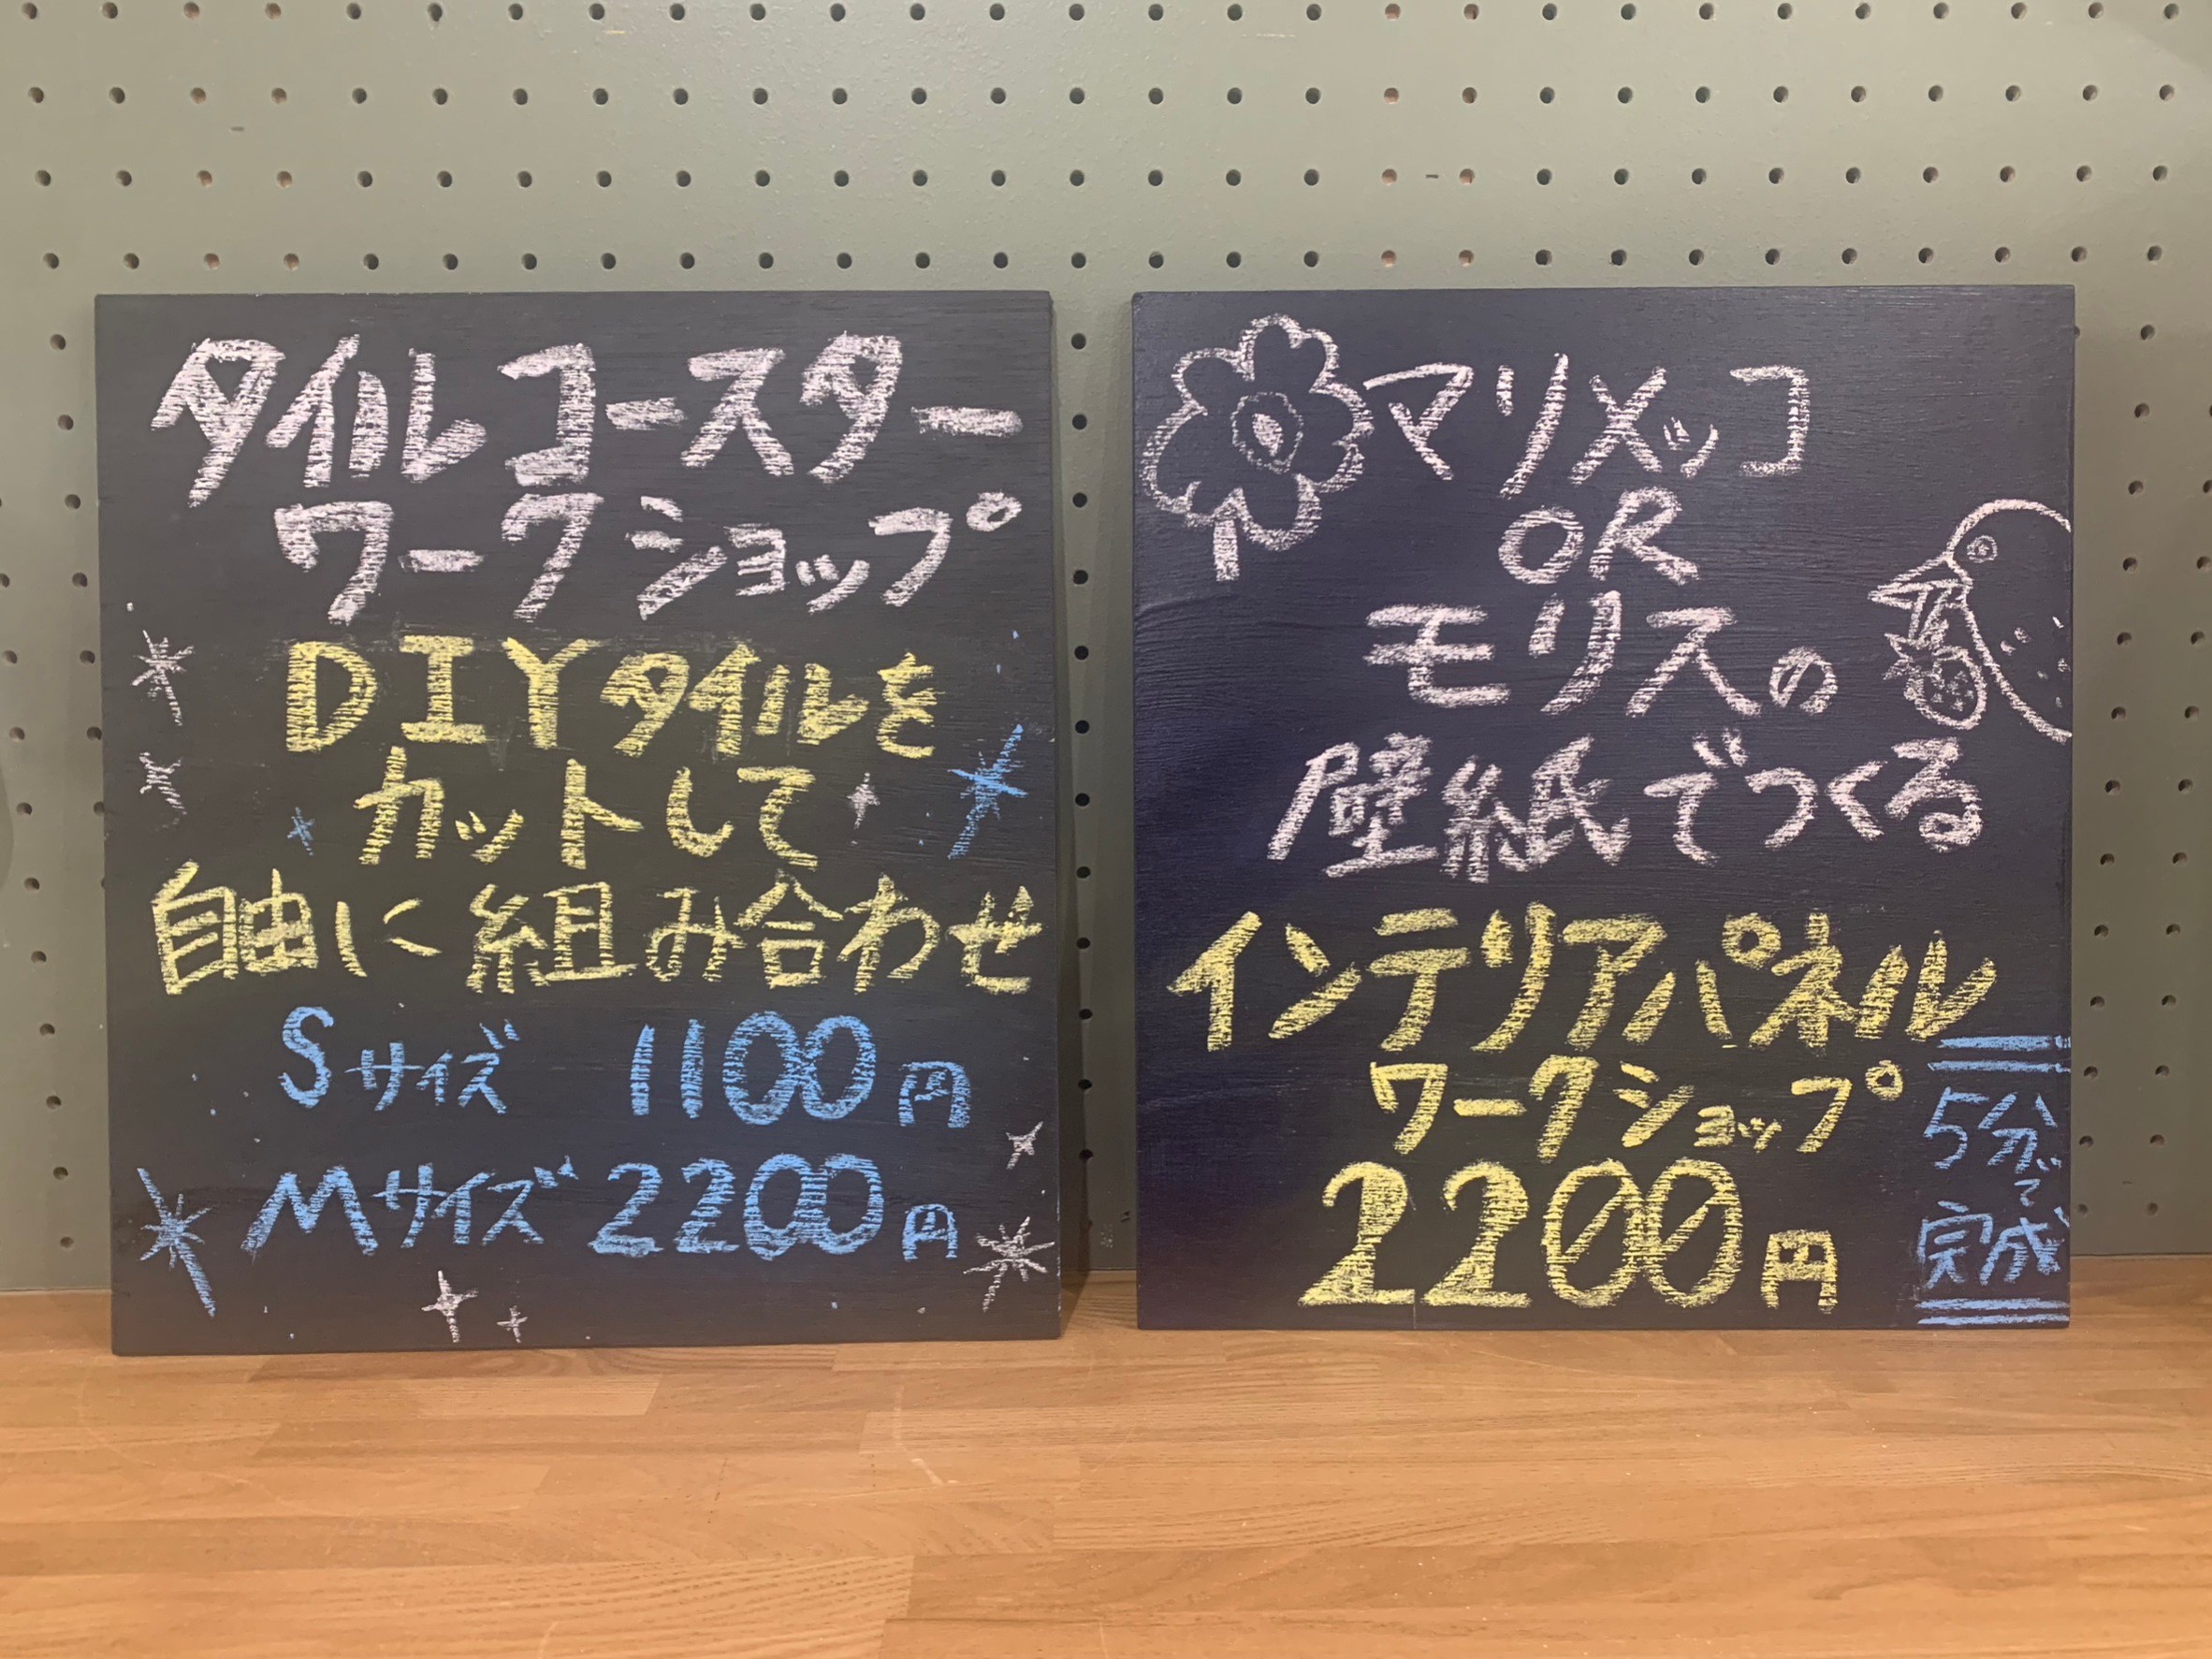 タイルコースター
ワークショップ
DIYタイルを
カットして
自由に組み合わせ
Sサイズ 1100円
Mサイズ 2200円
マリメッコ
OR
モリスの
壁紙でつくる
インテリアパネル
ワークショップ
2200円
5分で
完成